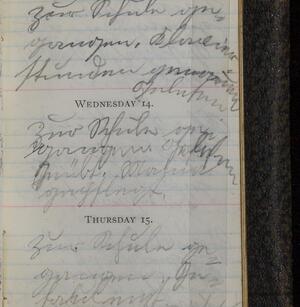 zur Schule ge-
gangen. Klavier
stunden genommen
Gelesen.
WEDNESDAY 14.
Zur Schule ge-
gangen. Gelesen
Geübt. Mama
gepflegt.
THURSDAY 15.
Zur Schule ge-
gangen.